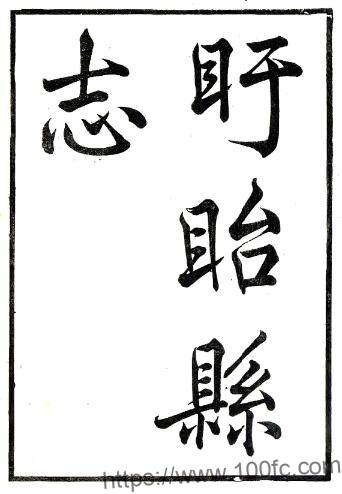 盱眙縣
志
https://www.100fc.com